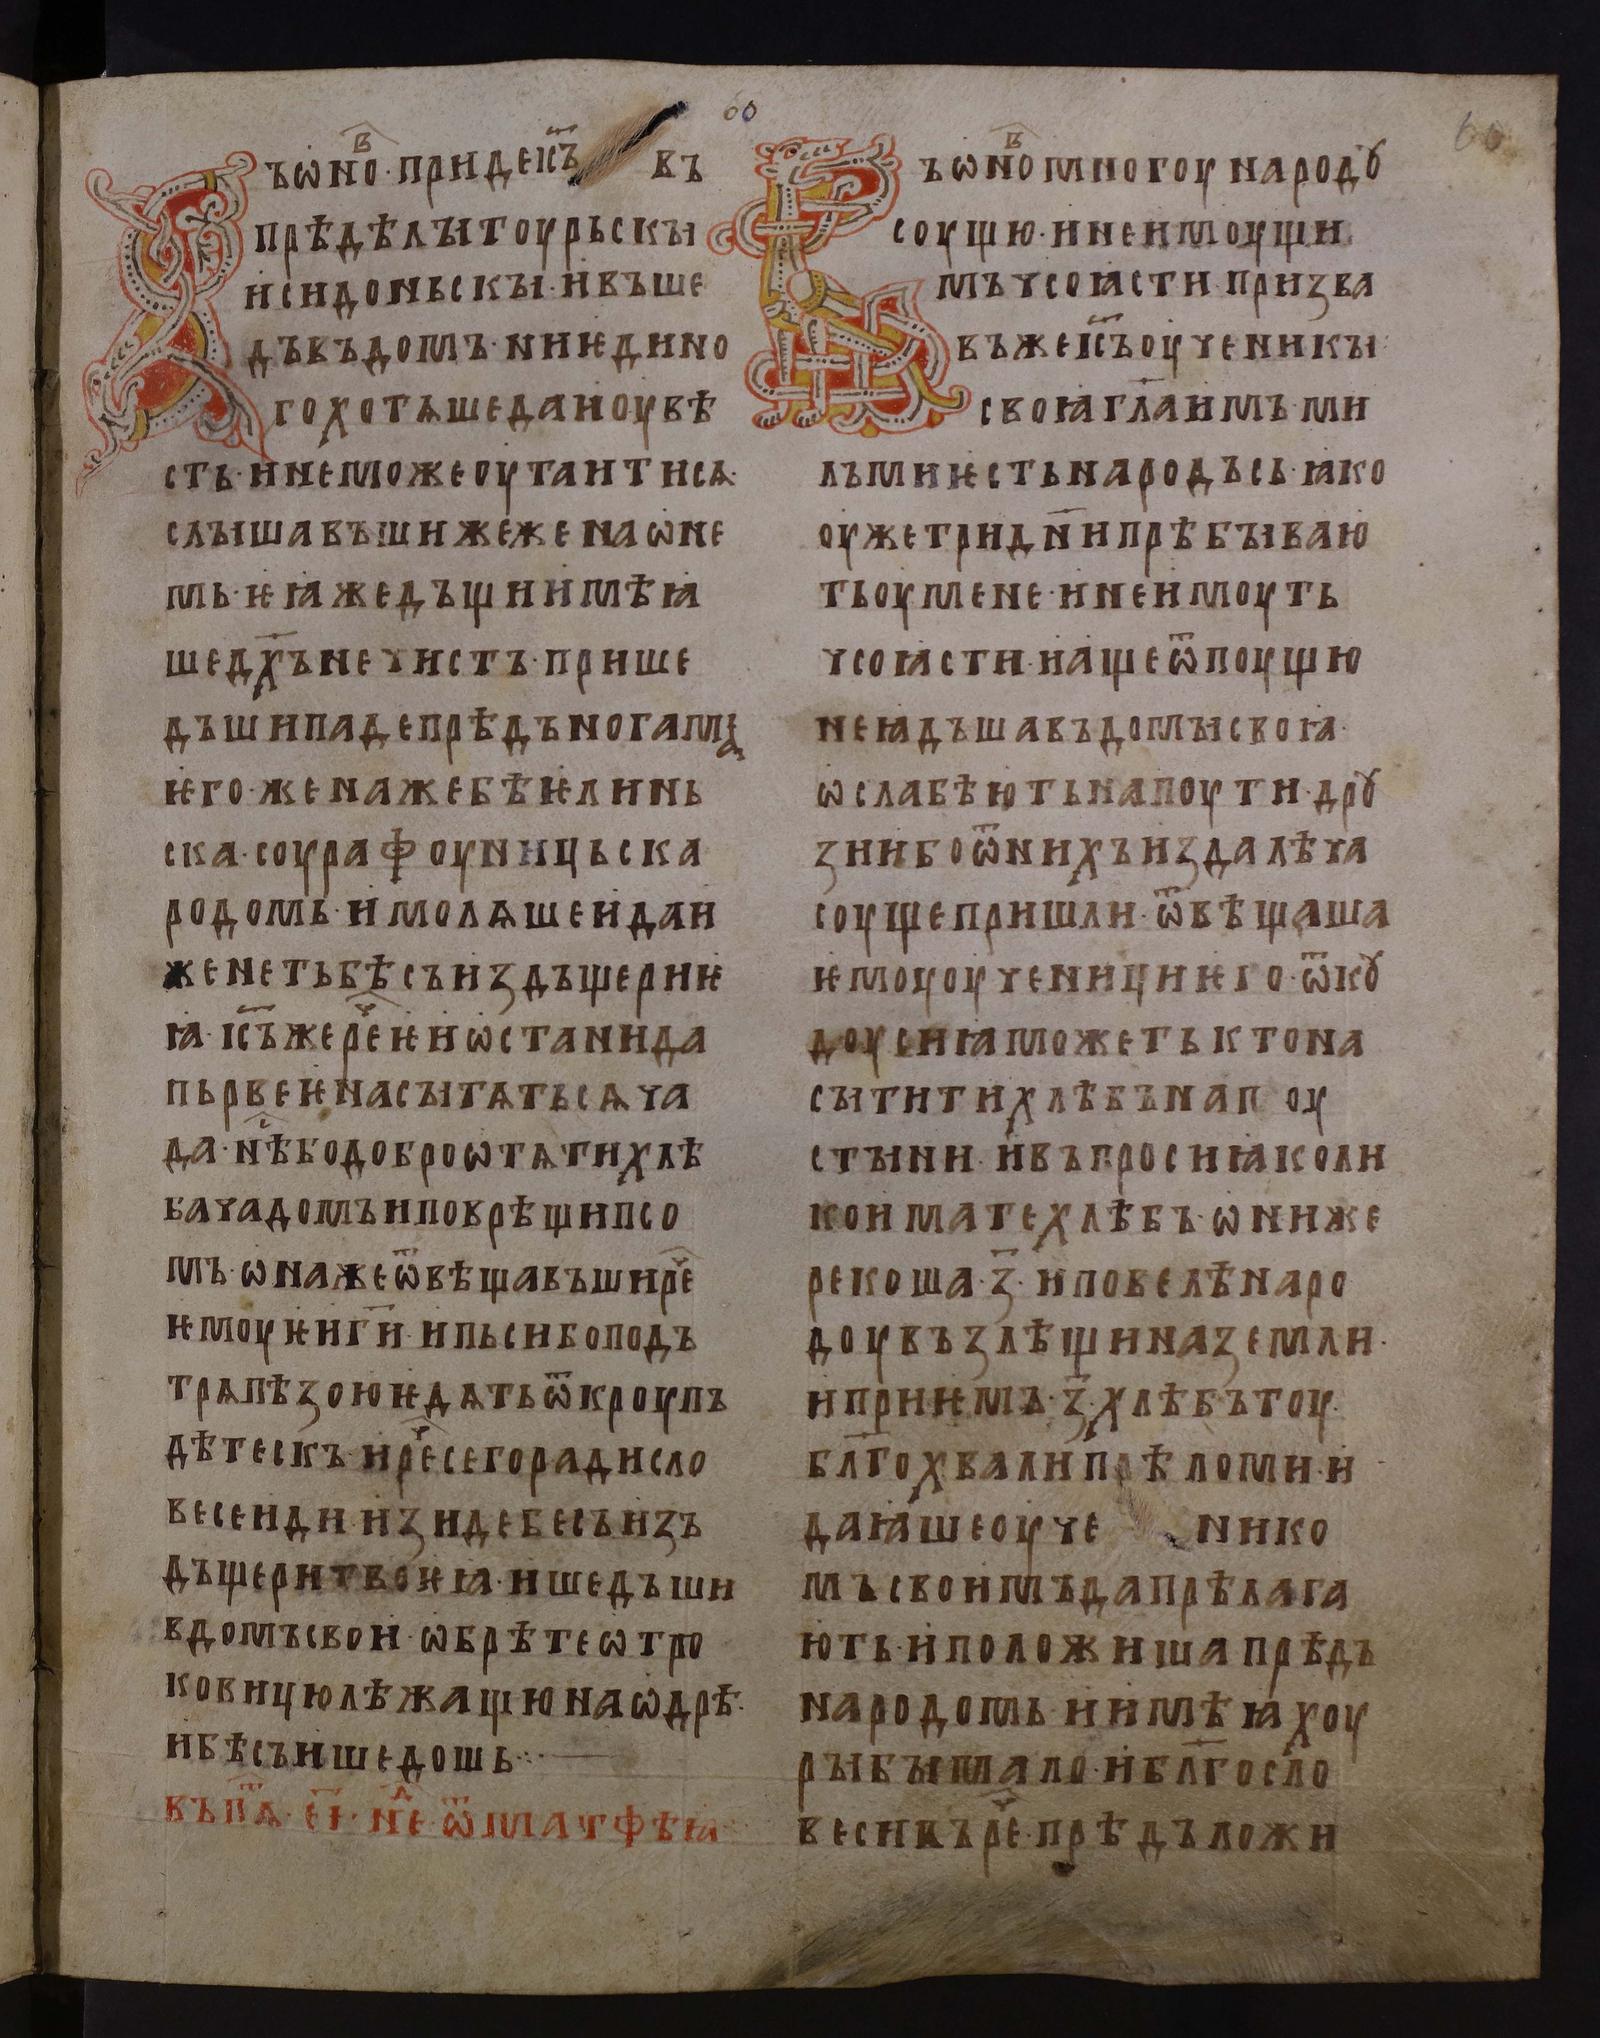 60
60
Въѡно҇в· придеі҃съ въ
прѣдѣлꙑтоурьскꙑ
исидоньскꙑ· ивъше
дъвъдомъ· ниѥдино
гохотѧшедаиоувѣ
сть· инеможеоутаитисѧ·
слꙑшавъшижеженаѡне
мь· ѥꙗжедъщиимѣꙗ
шед҃хънеѵистъ· прише
дъшипадепрѣдъногама
ѥго· женажебѣѥлинь
ска· соурафоуницьска
родомь· имолѧшеидаи
женетьбѣсъиздъщериѥ
ꙗ· і҃съжереⷱ҇ѥиѡстанида
пьрвеѥнасꙑтѧтьсѧѵа
да· нѣⷭ҇бодоброѡтѧтихлѣ
баѵадомъиповрѣщипсо
мъ· ѡнажеѿвѣщавъширеⷱ҇
ѥмоуѥиг҃и· ипьсибоподъ
трѧпѣзоюꙗдѧтьѿкроупъ
дѣтескъ· иреⷱ҇сегорадисло
весеидиизидебесъизъ
дъщеритвоѥꙗ· ишедъши
вдомъсвои· ѡбрѣтеѡтро
ковицюлѣжащюнаѡдрѣ·
ибѣсъишедошь··
въпⷮѧ· е҃і· неⷣ ѿматфѣꙗ
Въѡноⷡ҇многоународꙋ
соущю· инеимоущи
мъѵсоꙗсти· призва
въжеі҃съоуѵеникꙑ
своꙗгл҃аимъ· ми
лъмиѥстьнародъсь· ꙗко
оужетридн҃ипрѣбꙑваю
тьоумене· инеимоуть
ѵсоꙗсти· иащеѿпоущю
неꙗдъшавъдомꙑсвоꙗ·
ѡслабѣютьнапоути· дрꙋ
зиибоѿнихъиздалѣѵа
соущепришли· ѿвѣщаша
ѥмоуоуѵенициѥго· ѿкꙋ
доусиꙗможетьктона
сꙑтитихлѣбънап оу
стꙑни· ивъпросиꙗколи
коиматехлѣбъ· ѡниже
рекоша· з҃· иповелѣнаро
доувъзлѣщиназемли·
иприѥмъ· з҃· хлѣбътоу·
бл҃гохвалипрѣломи· и
даꙗшеоуѵе нико
мъсвоимъдапрѣлага
ють· иположишапрѣдъ
народомь· иимѣꙗхоу
рꙑбꙑмало· ибл҃госло
весивъреⷱ҇· прѣдъложи